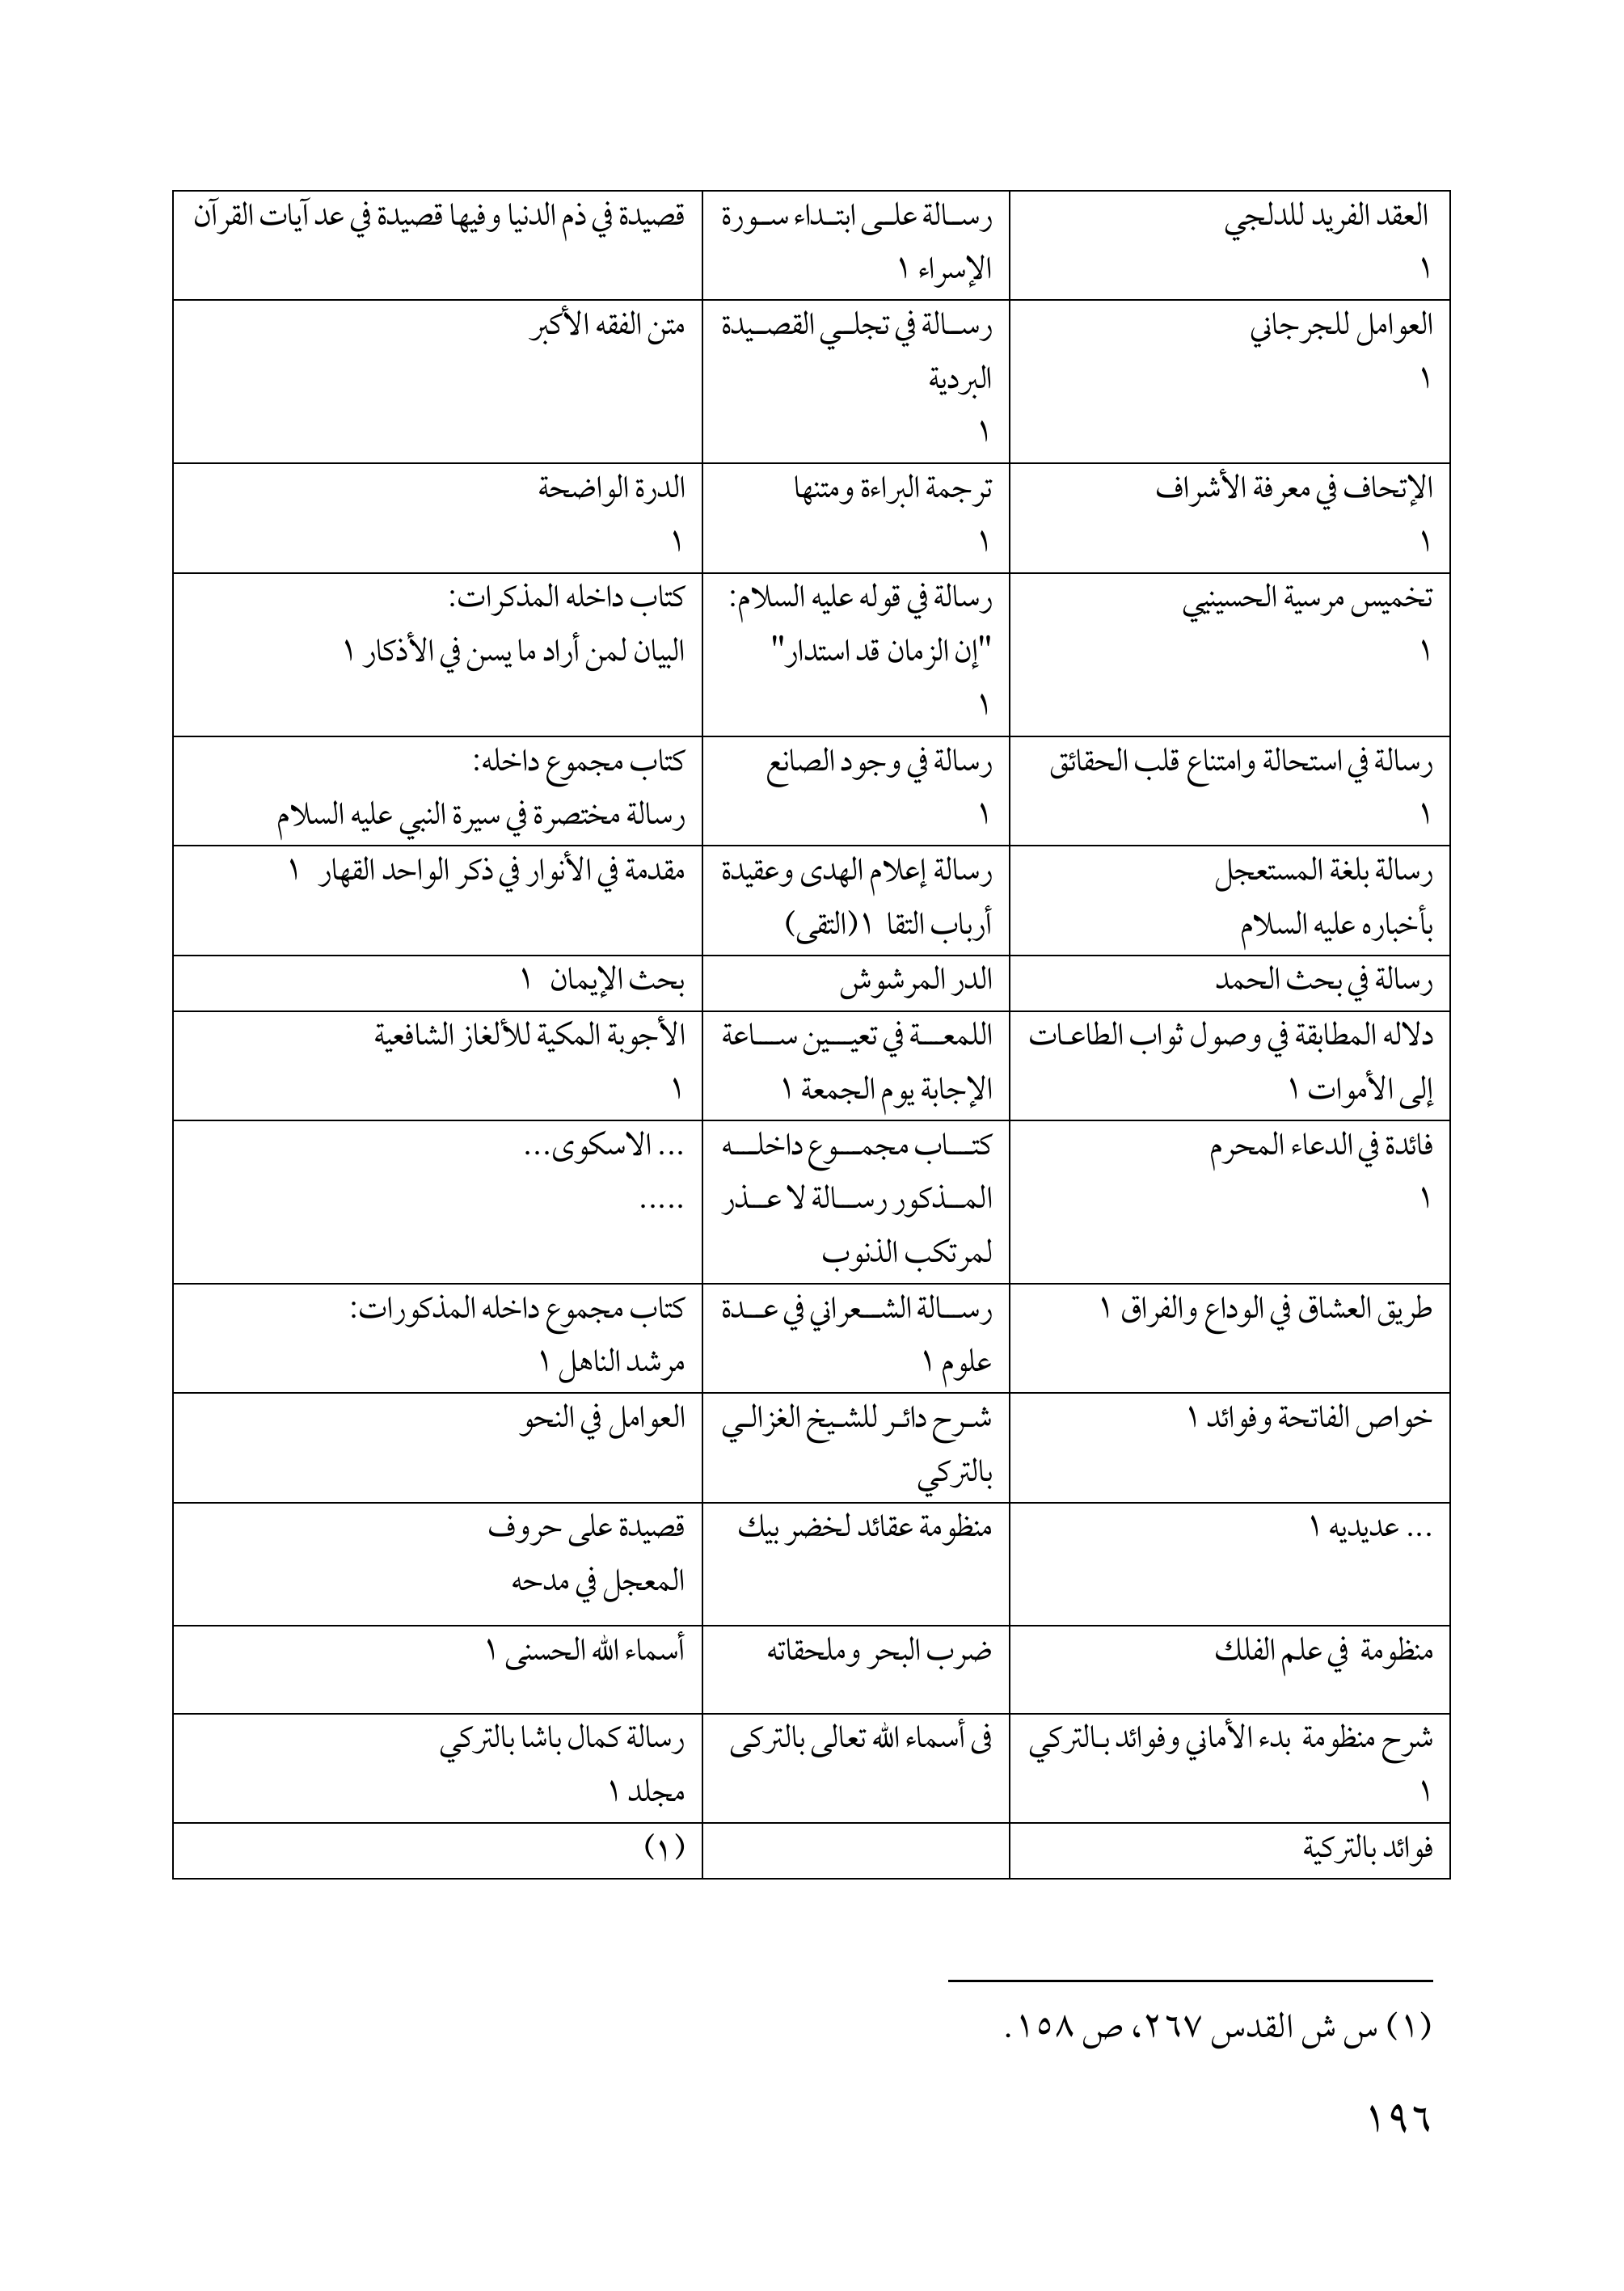 العقد الفريد للدلجي
١
رسالة على ابتداء سورة
الإسراء ١
قصيدة في ذم الدنيا وفيها قصيدة في عد آيات القرآن
العوامل للجرجاني
١
رسالة في تجلي القصيدة
البردية
١
متن الفقه الأكبر
الإتحاف في معرفة الأشراف
١
ترجمة البراءة ومتنها
١
الدرة الواضحة
١
تخميس مرسية الحسينيي
١
رسالة في قوله عليه السلام:
"إن الزمان قد استدار"
١
كتاب داخله المذكرات:
البيان لمن أراد ما يسن في الأذكار ١
رسالة في استحالة وامتناع قلب الحقائق
١
رسالة في وجود الصانع
١
كتاب مجموع داخله:
رسالة مختصرة في سيرة النبي عليه السلام
رسالة بلغة المستعجل
بأخباره عليه السلام
رسالة إعلام الهدى وعقيدة
أرباب التقا ١ (التقى)
مقدمة في الأنوار في ذكر الواحد القهار ١
رسالة في بحث الحمد
الدر المرشوش
بحث الإيمان ١
دلاله المطابقة في وصول ثواب الطاعات
إلى الأموات ١
اللمعة في تعيين ساعة
الإجابة يوم الجمعة ١
الأجوبة المكية للألغاز الشافعية
١
فائدة في الدعاء المحرم
١
كتاب مجموع داخله
المذكور رسالة لا عذر
لمرتكب الذنوب
... الاسكوى...
.....
طريق العشاق في الوداع والفراق ١
رسالة الشعراني في عدة
علوم ١
كتاب مجموع داخله المذكورات:
مرشد الناهل ١
خواص الفاتحة وفوائد ١
شرح دائر للشيخ الغزالي
بالتركي
العوامل في النحو
... عديديه ١
منظومة عقائد لخضر بيك
قصيدة على حروف
المعجل في مدحه
منظومة في علم الفلك
ضرب البحر وملحقاته
أسماء الله الحسنى ١
شرح منظومة بدء الأماني وفوائد بالتركي
١
فى أسماء الله تعالى بالتركى
رسالة كمال باشا بالتركي
مجلد ١
فوائد بالتركية
(١)
(١) س ش القدس ٢٦٧، ص ١٥٨.
١٩٦